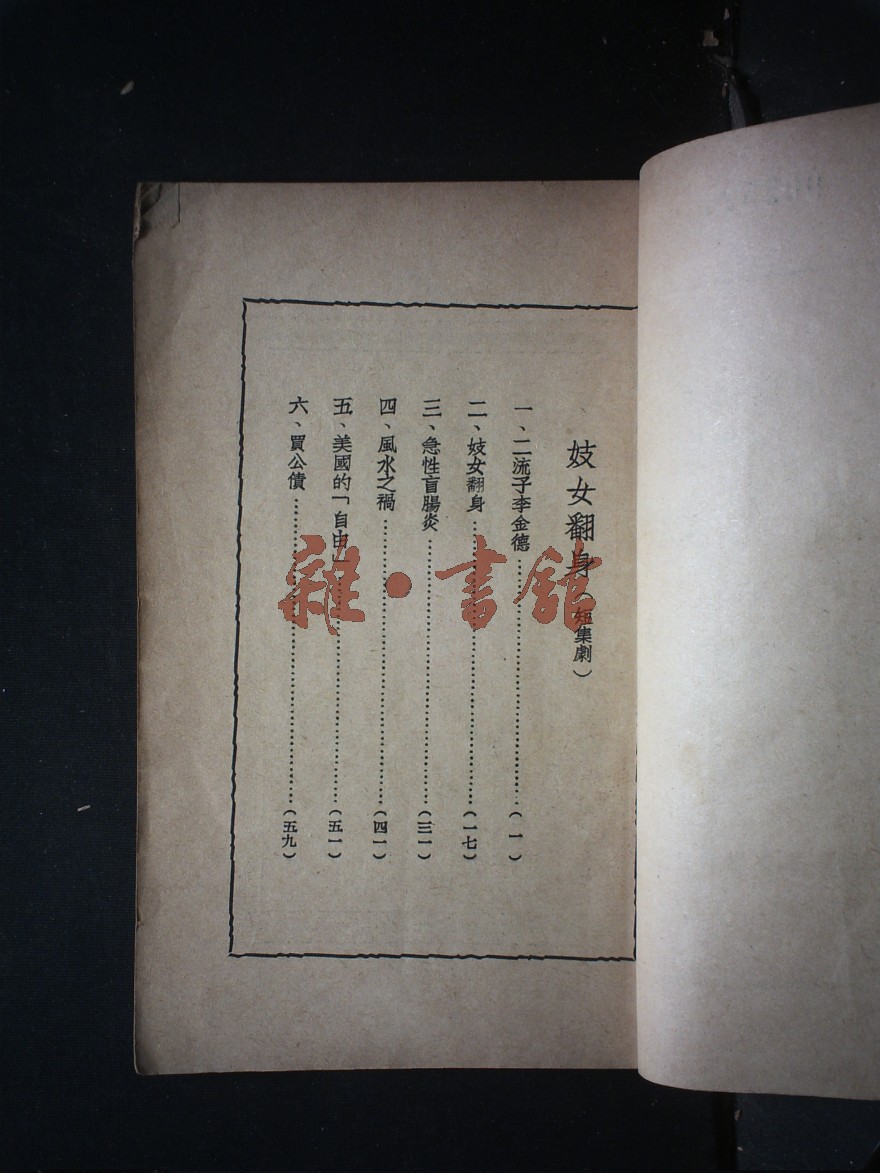 妓女翻身（短集劇）
一、二流子李金德……（一）
二、妓女翻身……（一七）
三、急性盲腸炎……（三一）
四、風水之禍……（四一）
五、美國的「自由」……（五一）
六、買公債……（五九）
雜·書館